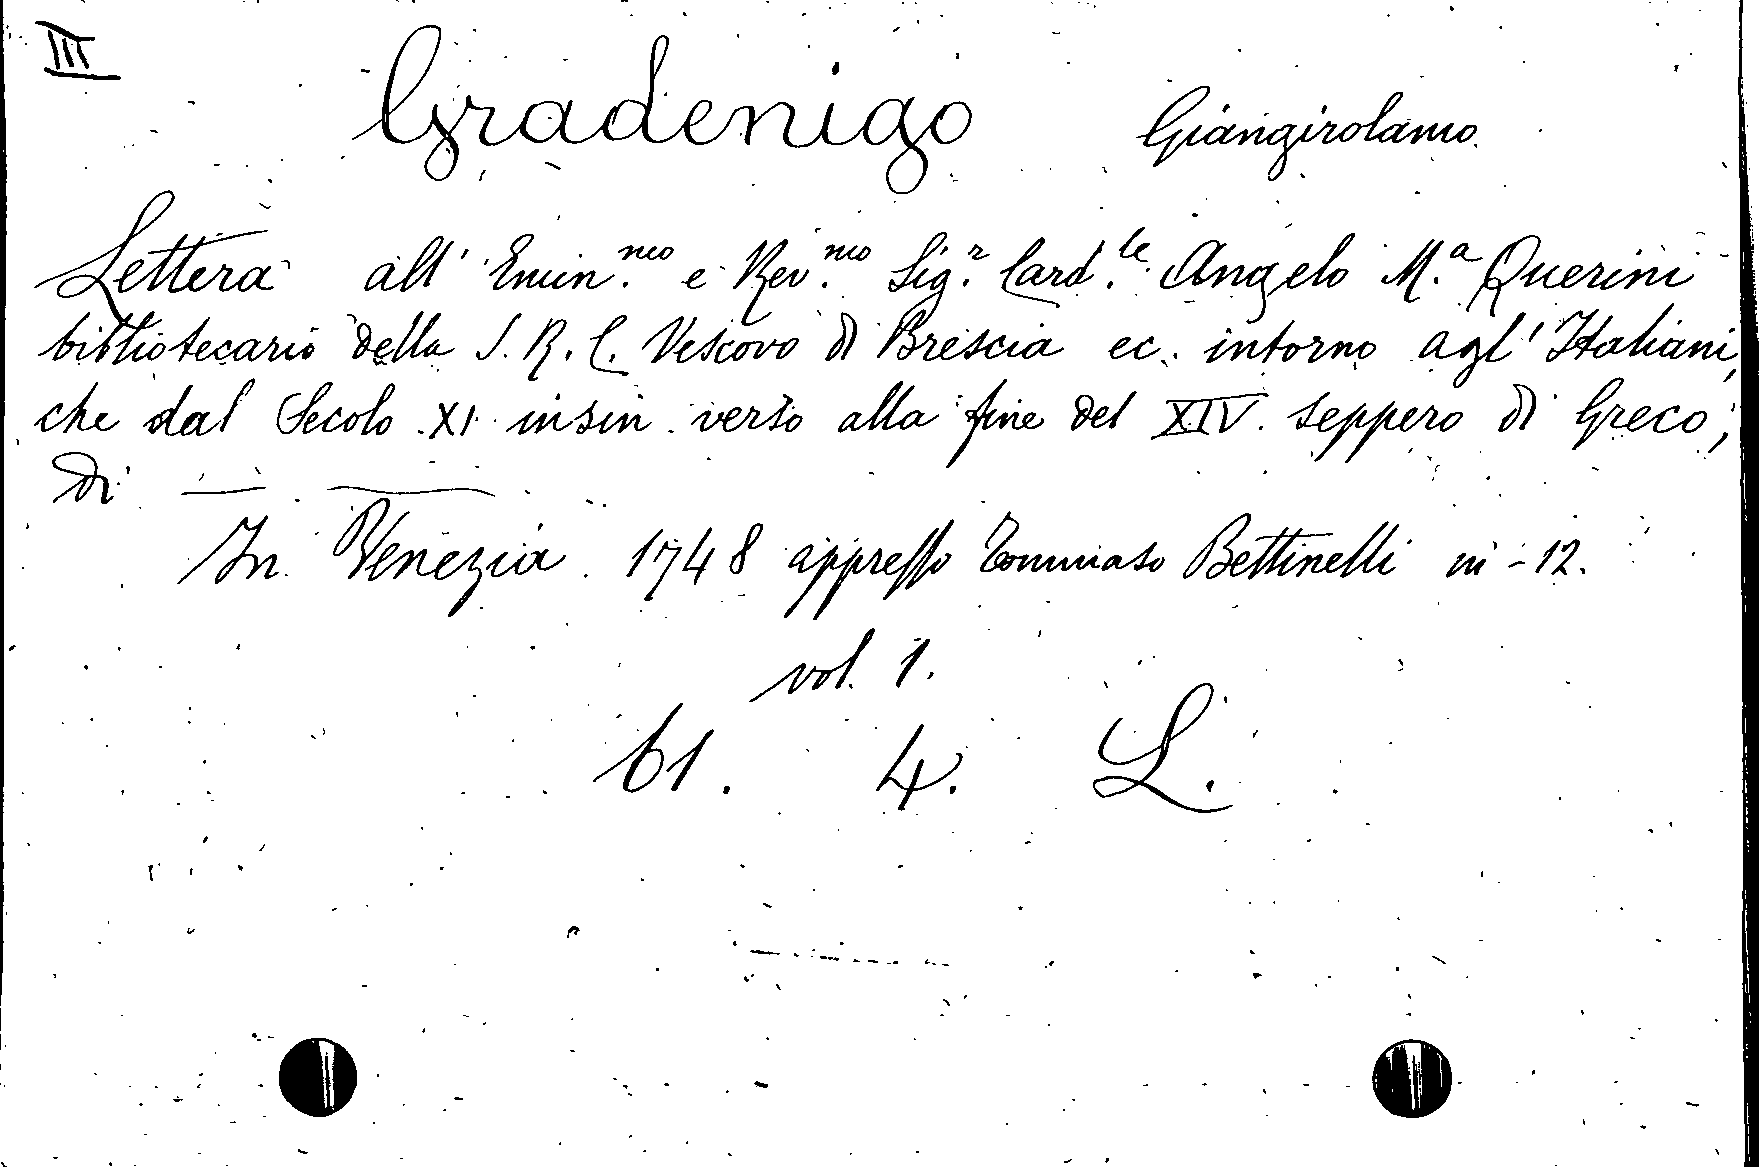 III
Gradenigo Giangirolamo.
Lettera all' Emin.mo e Rev.mo Sig.r Card.le Angelo M.a Querini
bibliotecario della S. R. C. Vescovo di Brescia ec. intorno agl' Italiani,
che dal Secolo XI insin verso alla fine del XIV. seppero di Greco;
di — —
In Venezia 1748 appresso Tommaso Bettinelli in-12.
vol. 1.
61. 4. L.